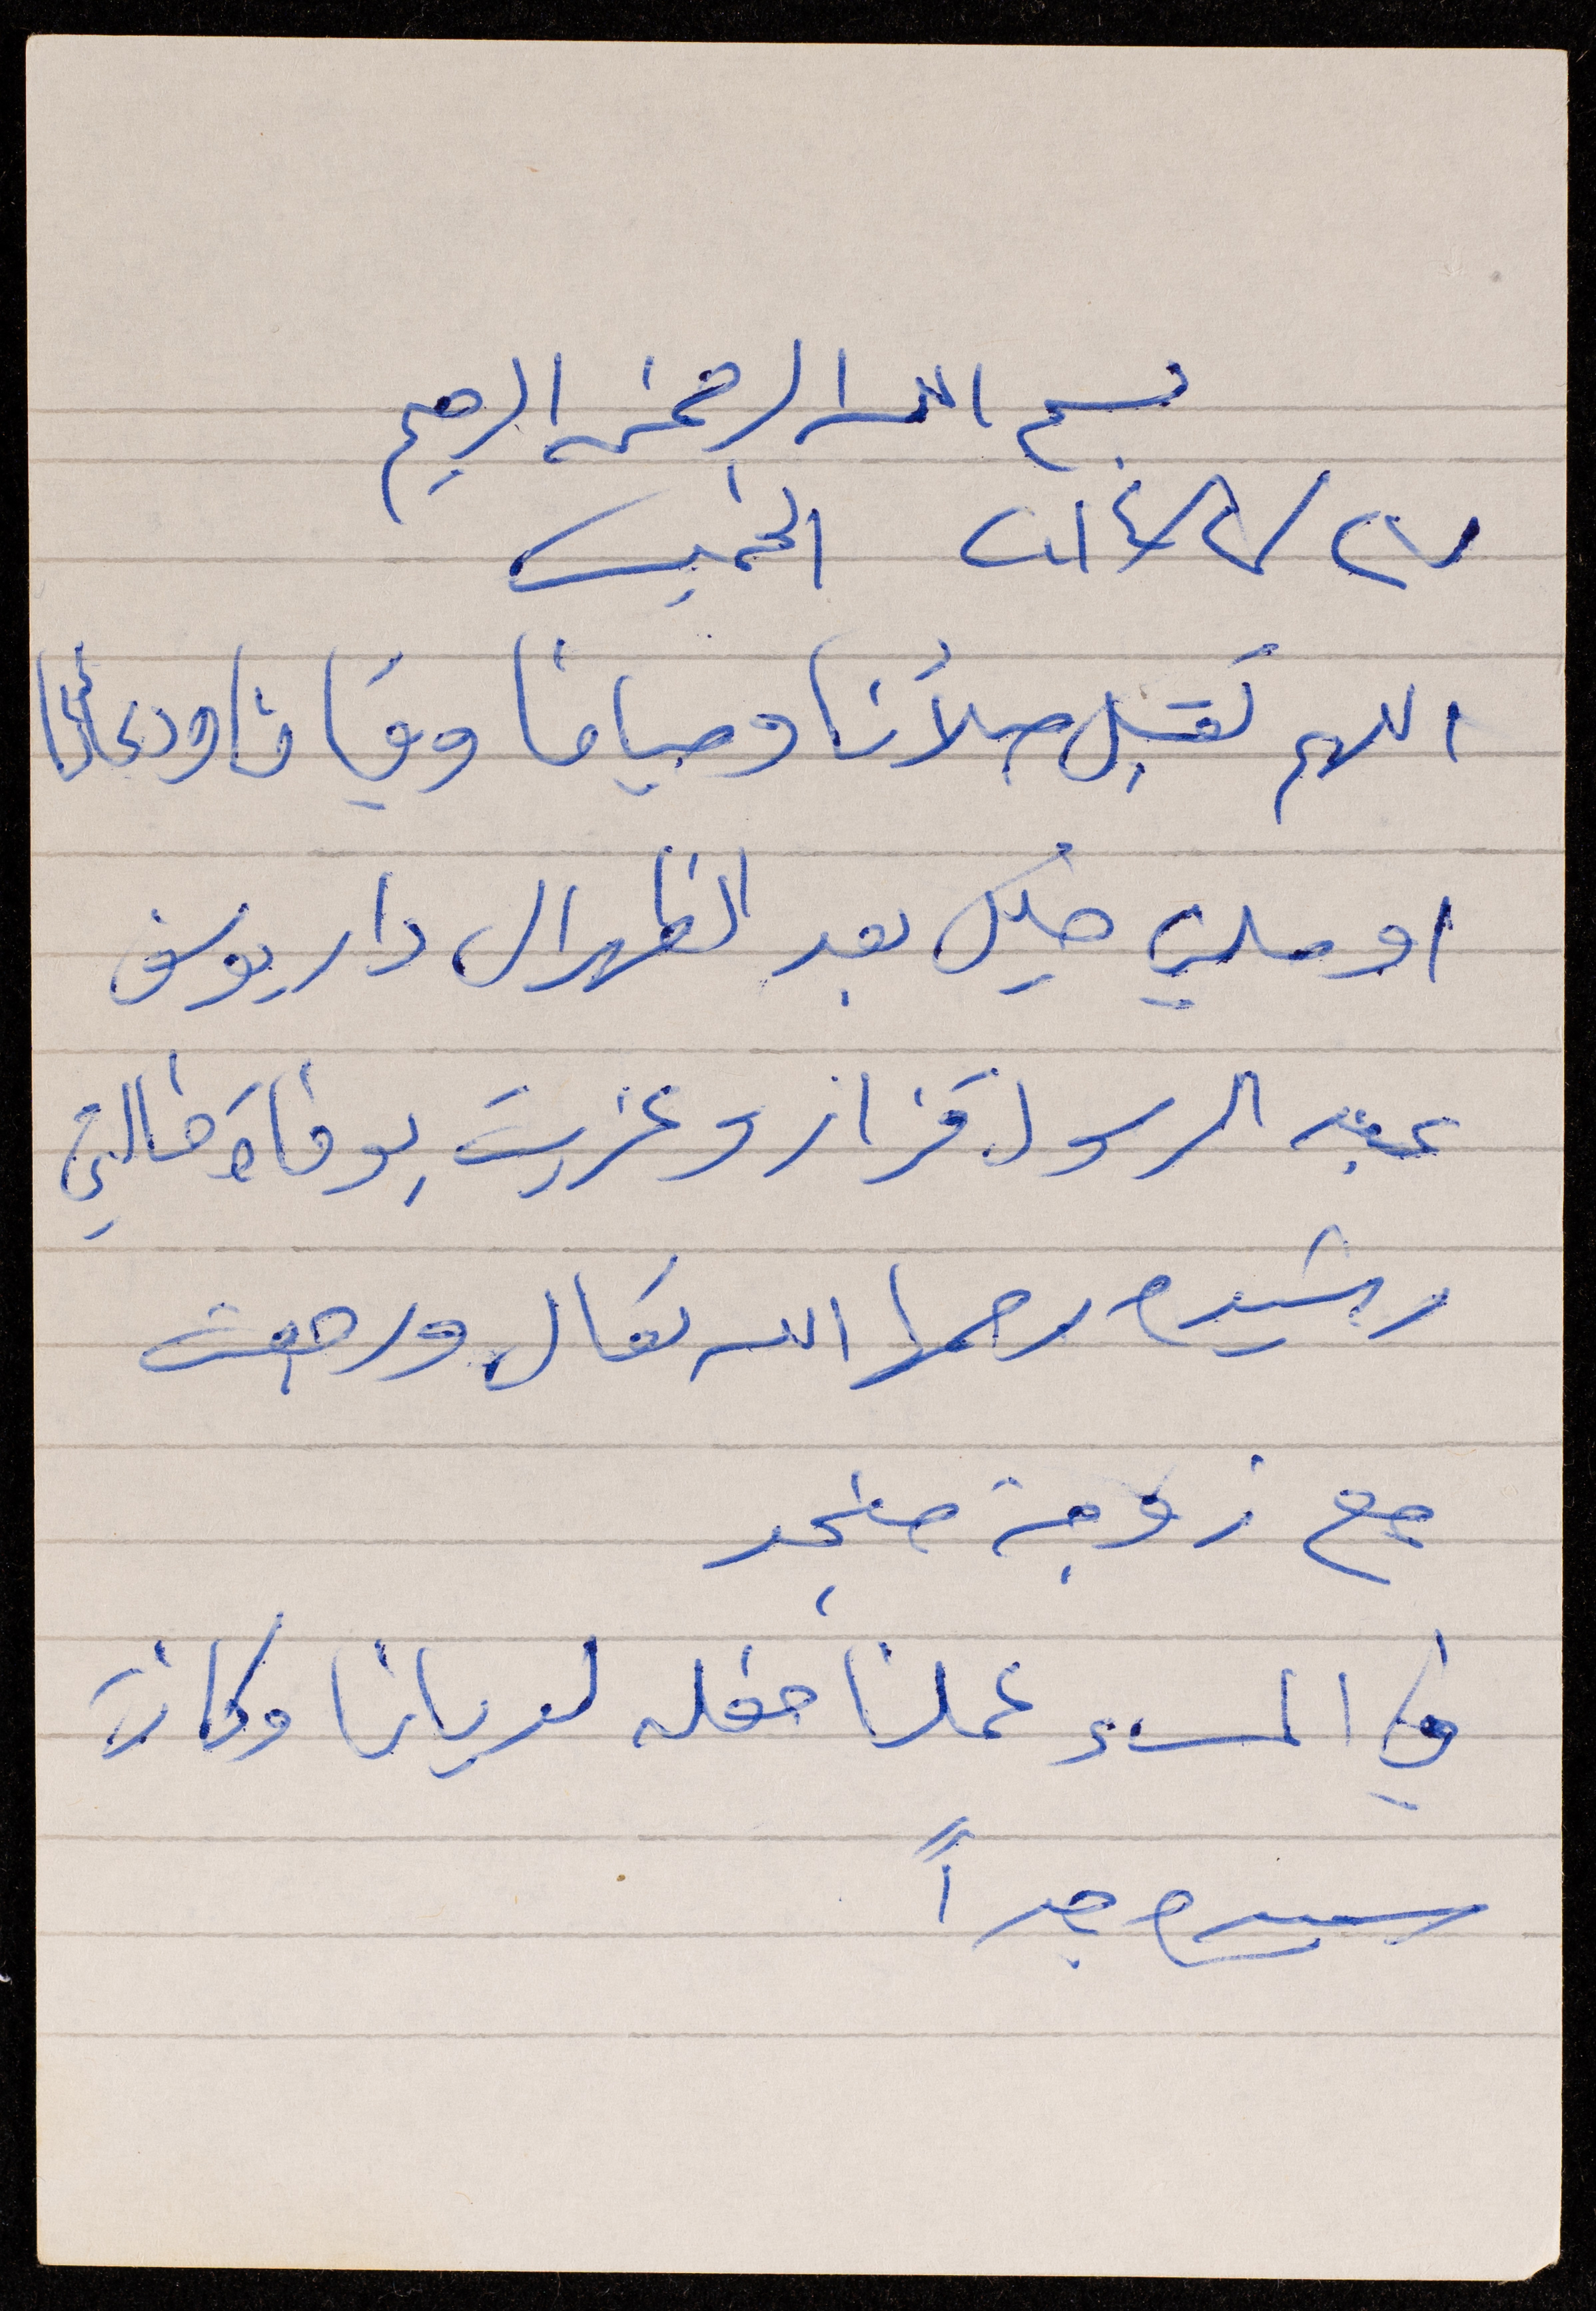 بسم الله الرحمن الرحيم
الخميس
اللهم تقبل صلاتنا وصيامنا وقيامنا ودعائنا
اوصلني خليل بعد الظهر ال دار يوسف
عبد الرسول قزاز وعزيت بوفاة خالتي
رشيده رحمها الله تعال ورجعت
مع زوجة منجد
في المساء عملنا حفله لديانا وكانت
سعيده جداً